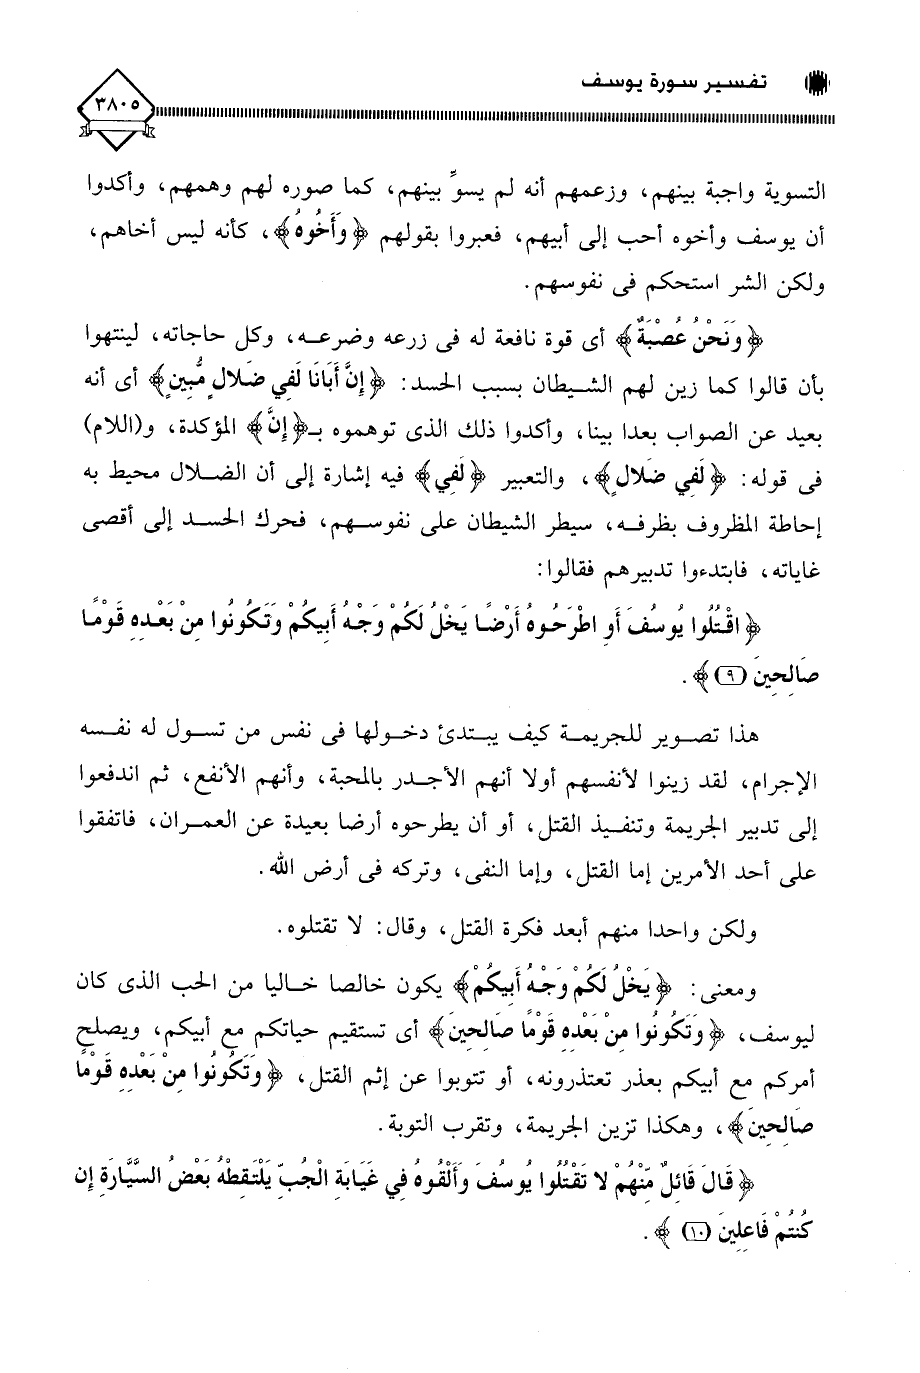 تفسير سورة يوسف
٣٨٠٥
التسوية واجبة بينهم، وزعمهم أنه لم يسوِّ بينهم، كما صوره لهم وهمهم، وأكدوا
أن يوسف وأخوه أحب إلى أبيهم، فعبروا بقولهم ﴿وَأَخُوهُ﴾، كأنه ليس أخاهم،
ولكن الشر استحكم فى نفوسهم.
﴿وَنَحْنُ عُصْبَةٌ﴾ أى قوة نافعة له فى زرعه وضرعه، وكل حاجاته، لينتهوا
بأن قالوا كما زين لهم الشيطان بسبب الحسد: ﴿إِنَّ أَبَانَا لَفِي ضَلالٍ مُّبِينٍ﴾ أى أنه
بعيد عن الصواب بعدا بينا، وأكدوا ذلك الذى توهموه بـ﴿إِنَّ﴾ المؤكدة، و(اللام)
فى قوله: ﴿لَفِي ضَلالٍ﴾، والتعبير ﴿لَفِي﴾ فيه إشارة إلى أن الضلال محيط به
إحاطة المظروف بظرفه، سيطر الشيطان على نفوسهم، فحرك الحسد إلى أقصى
غاياته، فابتدءوا تدبيرهم فقالوا:
﴿اقْتُلُوا يُوسُفَ أَوِ اطْرَحُوهُ أَرْضًا يَخْلُ لَكُمْ وَجْهُ أَبِيكُمْ وَتَكُونُوا مِنْ بَعْدِهِ قَوْمًا
صَالِحِينَ (٩)﴾.
هذا تصوير للجريمة كيف يبتدئ دخولها فى نفس من تسول له نفسه
الإجرام، لقد زينوا لأنفسهم أولا أنهم الأجدر بالمحبة، وأنهم الأنفع، ثم اندفعوا
إلى تدبير الجريمة وتنفيذ القتل، أو أن يطرحوه أرضا بعيدة عن العمران، فاتفقوا
على أحد الأمرين إما القتل، وإما النفى، وتركه فى أرض الله.
ولكن واحدا منهم أبعد فكرة القتل، وقال: لا تقتلوه.
ومعنى: ﴿يَخْلُ لَكُمْ وَجْهُ أَبِيكُمْ﴾ يكون خالصا خاليا من الحب الذى كان
ليوسف، ﴿وَتَكُونُوا مِنْ بَعْدِهِ قَوْمًا صَالِحِينَ﴾ أى تستقيم حياتكم مع أبيكم، ويصلح
أمركم مع أبيكم بعذر تعتذرونه، أو تتوبوا عن إثم القتل، ﴿وَتَكُونُوا مِنْ بَعْدِهِ قَوْمًا
صَالِحِينَ﴾، وهكذا تزين الجريمة، وتقرب التوبة.
﴿قَالَ قَائِلٌ مِّنْهُمْ لا تَقْتُلُوا يُوسُفَ وَأَلْقُوهُ فِي غَيَابَةِ الْجُبِّ يَلْتَقِطْهُ بَعْضُ السَّيَّارَةِ إِن
كُنتُمْ فَاعِلِينَ (١٠)﴾.